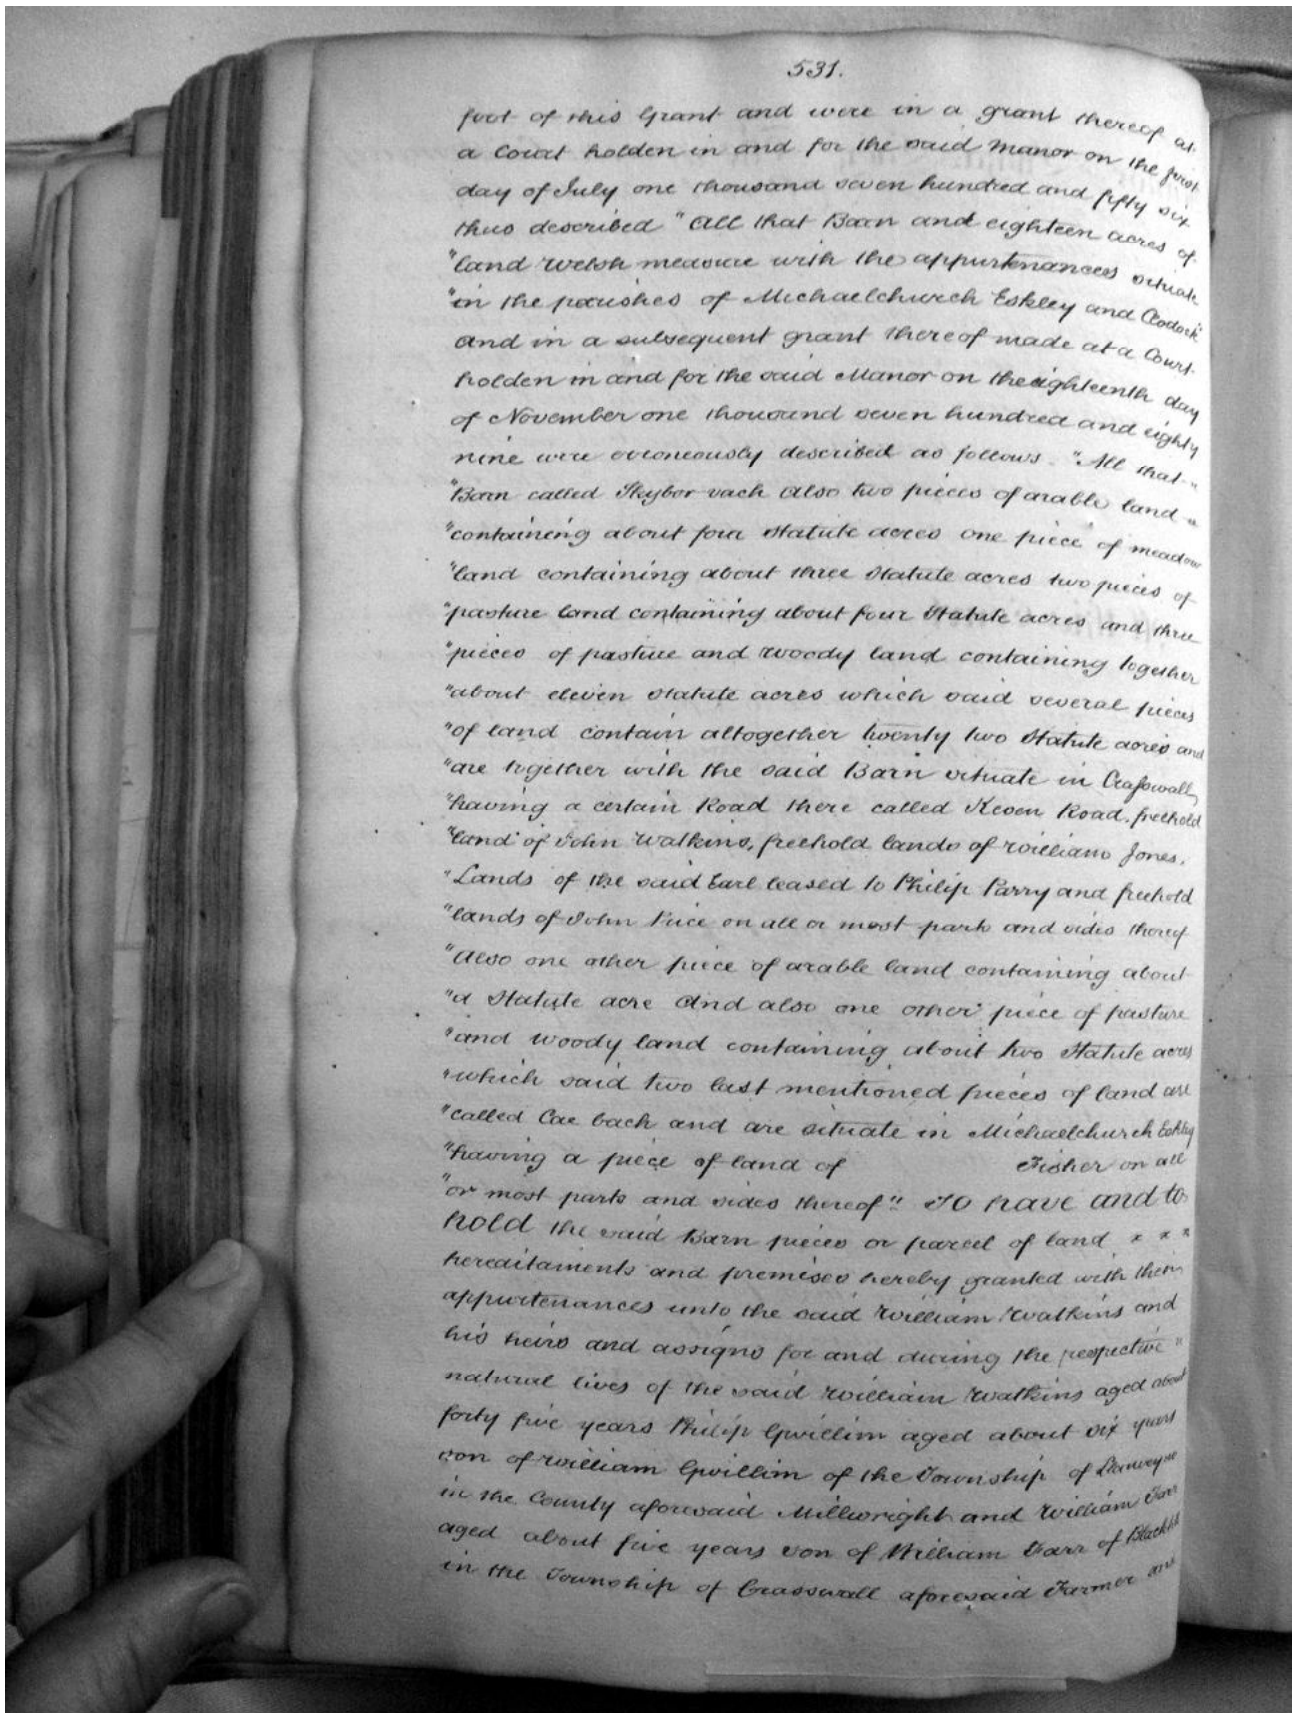 531.
foot of this Grant and were in a grant thereof at
a Court holden in and for the said Manor on the first
day of July one thousand seven hundred and fifty six
thus described "All that Barn and eighteen acres of
"land Welsh measure with the appurtenances situate
"in the parishes of Michaelchurch Eskley and Clodock"
and in a subsequent grant thereof made at a Court
holden in and for the said Manor on the eighteenth day
of November one thousand seven hundred and eighty
nine were erroneously described as follows. "All that "
"Barn called Skybor vach also two pieces of arable land "
"containing about four statute acres one piece of meadow
"land containing about three statute acres two pieces of
"pasture land containing about four Statute acres and three
"pieces of pasture and woody land containing together
"about eleven statute acres which said several pieces
"of land contain altogether twenty two Statute acres and
"are together with the said Barn situate in Crasswall
"having a certain Road there called Keven Road, freehold
"land of John Watkins, freehold lands of William Jones,
"Lands of the said Earl leased to Philip Parry and freehold
"lands of John Price on all or most parts and sides thereof
"Also one other piece of arable land containing about
"a Statute acre And also one other piece of pasture
"and woody land containing about two Statute acres
"which said two last mentioned pieces of land are
"called Cae bach and are situate in Michaelchurch Eskley
"having a piece of land of Fisher on all
"or most parts and sides thereof" To have and to
hold the said Barn pieces or parcel of land x x x
hereditaments and premises hereby granted with their
appurtenances unto the said William Watkins and
his heirs and assigns for and during the respective "
natural lives of the said William Watkins aged about
forty five years Philip Gwillim aged about six years
son of William Gwillim of the Township of Llanveyno
in the County aforesaid Millwright and William Farr
aged about five years son of William Farr of Blackhill
in the Township of Crasswall aforesaid Farmer and